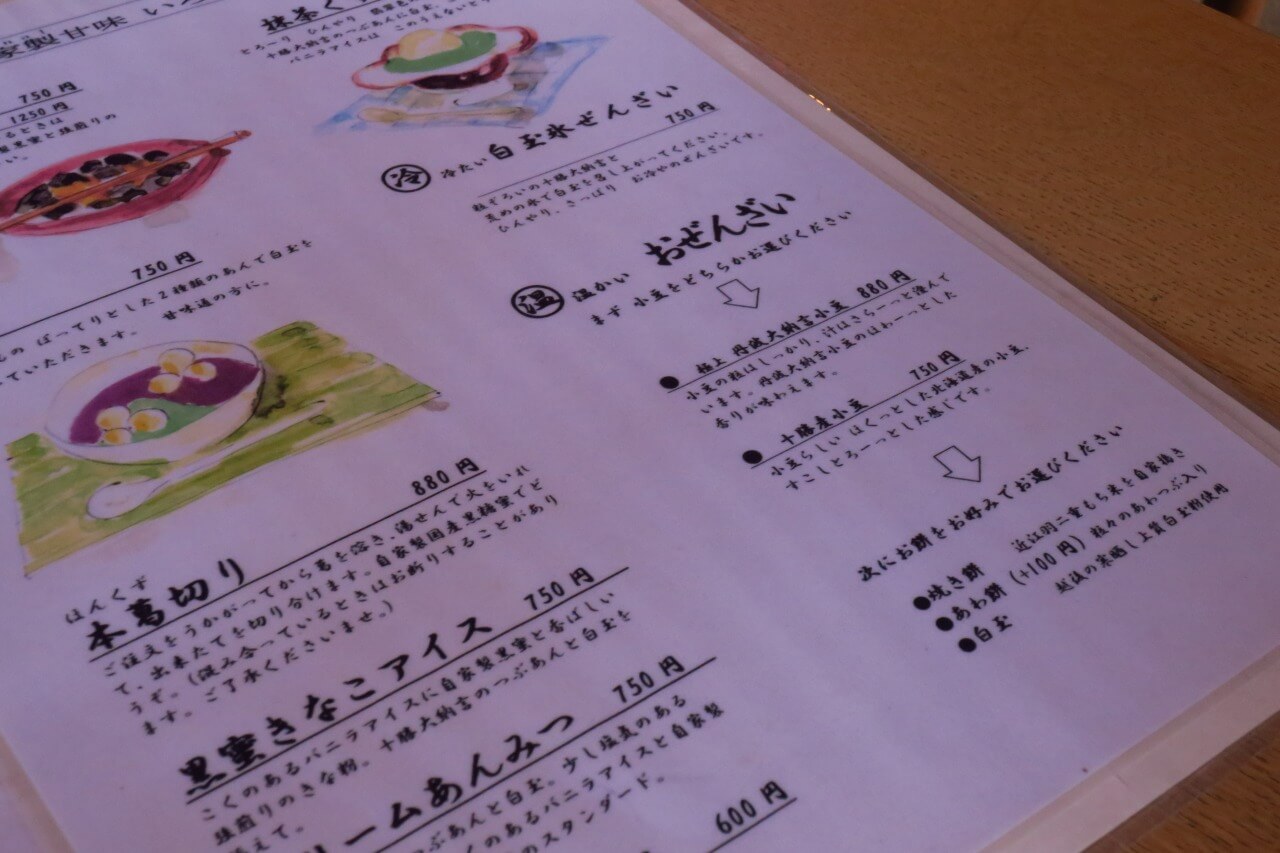 家製甘味 い
750円
1250円
るときは
黒蜜と鉄煎りの
い。
750円
の ぽってりとした2種類のあんで白玉を
ていただきます。 甘味道の方に。
ほんくず
本葛切り 880円
ご注文をうかがってから葛を溶き、湯せんで火をいれ
て、出来たてを切り分けます。自家製国産黒糖蜜でど
うぞ。(混み合っているときはお断りすることがあり
ます。ご了承くださいませ。)
黒蜜きなこアイス 750円
こくのあるバニラアイスに自家製黒蜜と香ばしい
鉄煎りのきな粉。十勝大納言のつぶあんと白玉を
添えて。
ームあんみつ 750円
つぶあんと白玉。少し塩気のある
くのあるバニラアイスと自家製
のスタンダード。
600円
抹茶く
とろーり ひんやり
十勝大納言のつぶあんに白玉、
バニラアイスは このうえない
冷 冷たい 白玉氷ぜんざい
750円
粒ぞろいの十勝大納言と
里めの氷で白玉を召し上がってください。
ひんやり、さっぱり お冷やのぜんざいです。
温 温かい おぜんざい
まず 小豆をどちらかお選びください
● 極上 丹波大納言小豆 880円
小豆の粒はしっかり、汁はさらーっと澄んで
います。丹波大納言小豆のほわーっとした
香りが味わえます。
● 十勝産小豆 750円
小豆らしい ほくっとした北海道産の小豆。
すこしとろーっとした感じです。
次にお餅をお好みでお選びください
●焼き餅 近江羽二重もち米を自家搗き
●あわ餅 (+100円) 粒々のあわつぶ入り
●白玉 越後の寒晒し上質白玉粉使用